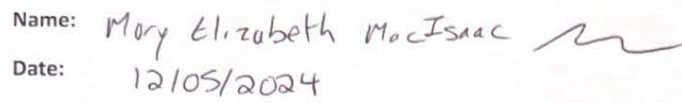 Name: Mary Elizabeth MacIsaac
Date: 12/05/2024